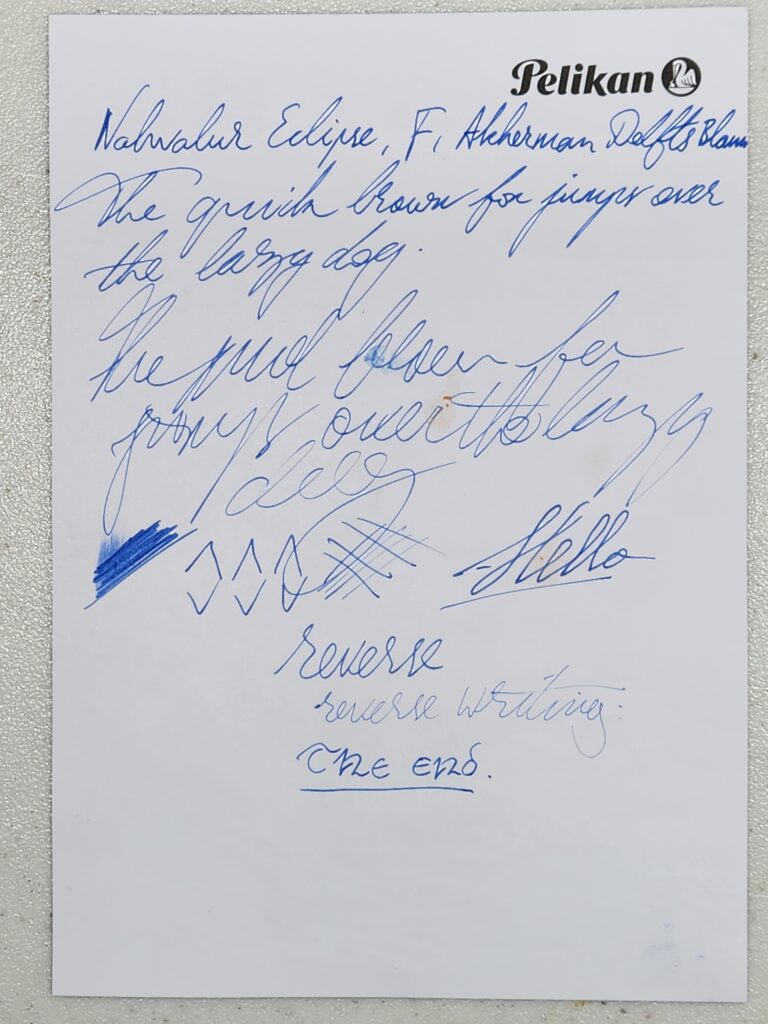 Pelikan
Nahvalur Eclipse, F, Akkerman Delfts Blauw
The quick brown fox jumps over
the lazy dog.
The
jumps over the lazy
Hello
reverse
reverse writing.
The end.